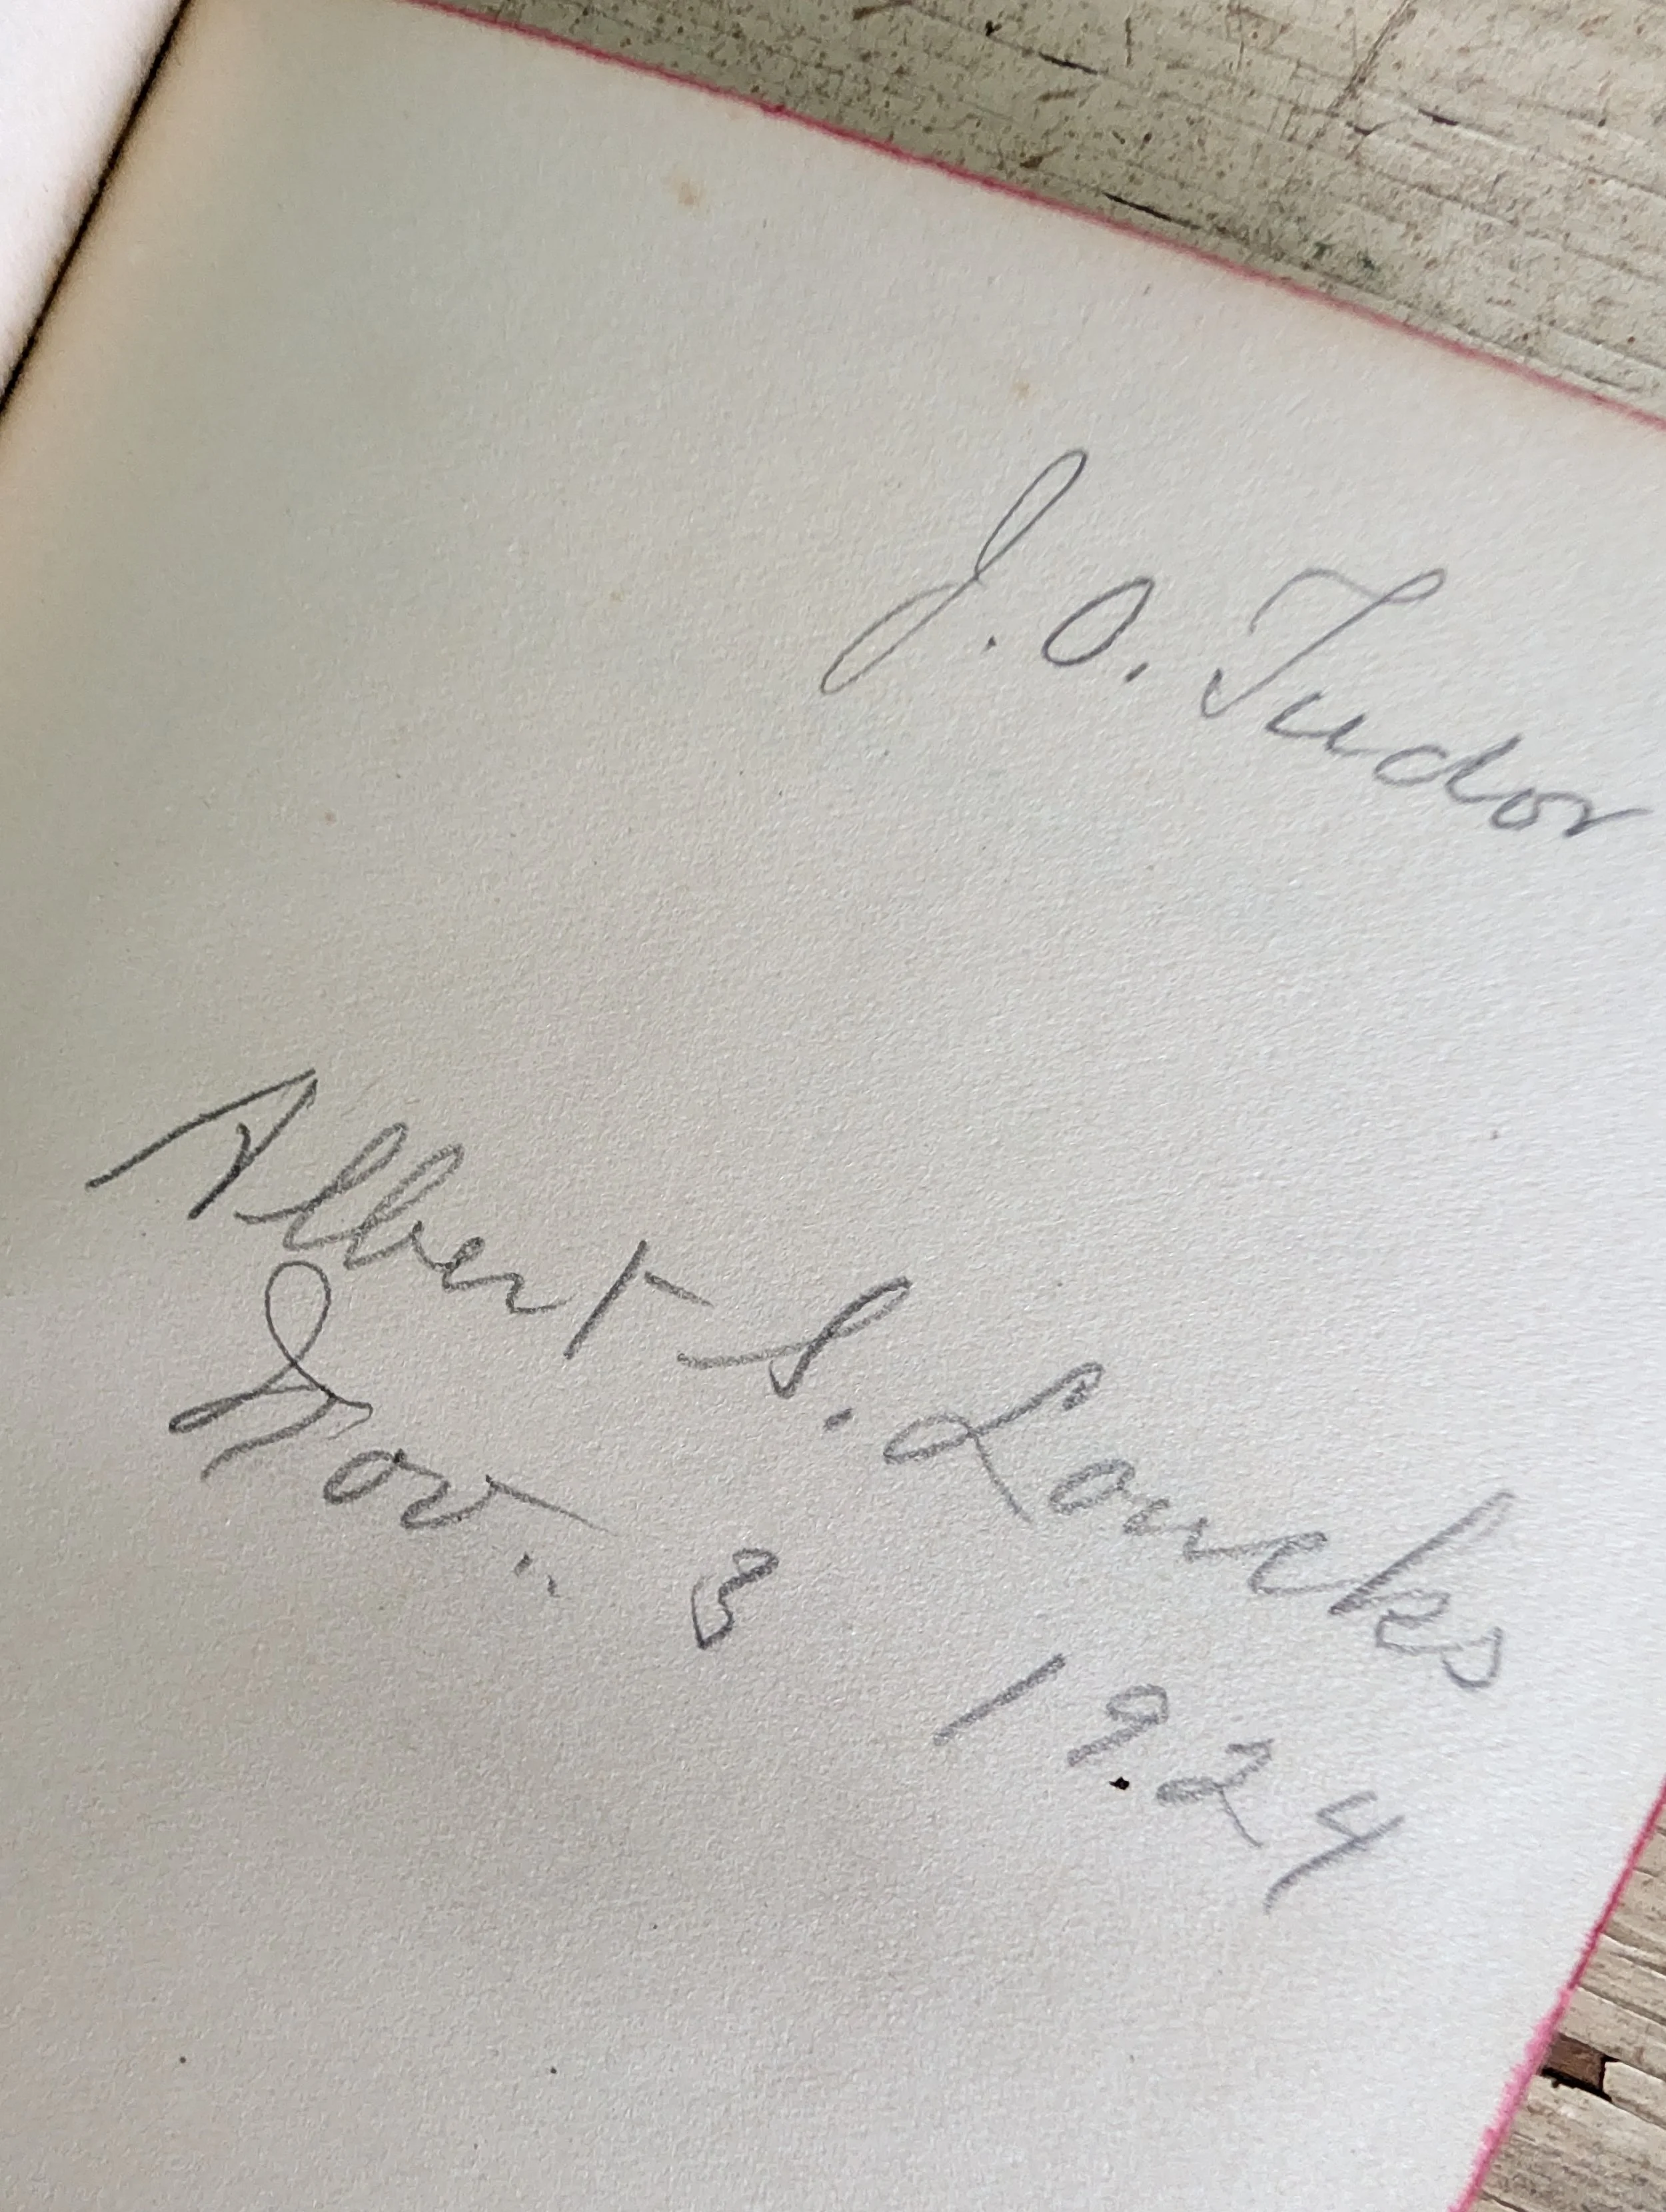 J. O. Tudor
Albert S. Loucks
Nov. 3 1924